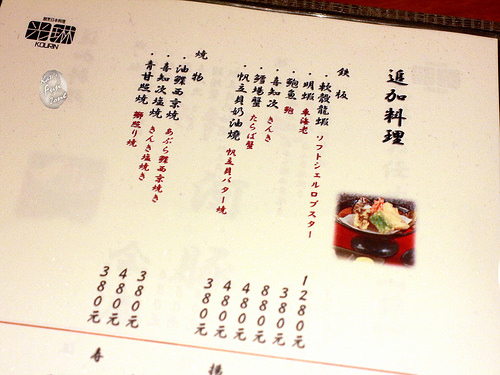 創客日本料理
光琳
KOURIN
追加料理
鉄板
・軟殼龍蝦 ソフトシェルロブスター 1280元
・明蝦 車海老 380元
・鮑魚 鮑 880元
・喜知次 きんき 880元
・鱈場蟹 たらば蟹 480元
・帆立貝奶油燒 帆立貝バター焼 380元
燒物
・油鰈西京燒 あぶら鰈西京焼き 380元
・喜知次塩燒 きんき塩焼き 480元
・青甘照燒 鰤照り焼 380元
揚
寿